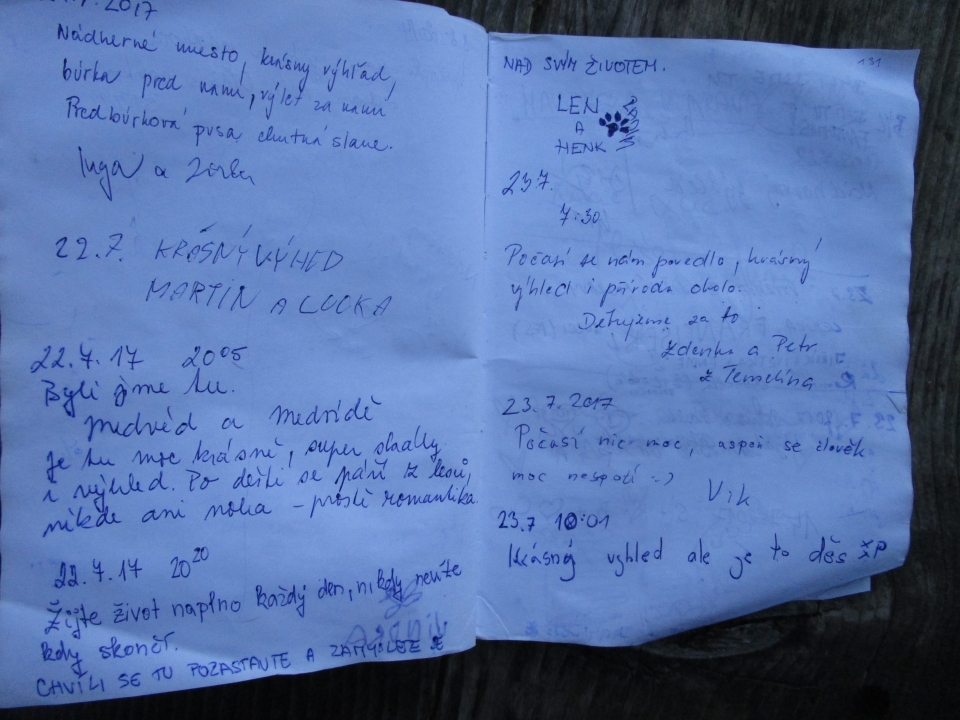 .7.2017
Nádherné miesto, krásny výhľad,
búrka pred nami, výlet za nami
Predbúrková pusa chutná slane.
Inga a
22.7. KRÁSNÝ VÝHED
MARTIN A LUCKA
22.7.17 20 05
Byli jsme tu.
Medvěd a Medvídě
je tu moc krásně, super sladky
i výhled. Po dešti se páří z lesů,
nikde ani noha - prostě romantika
22.7.17 20 20
Žijte život naplno každý den, nikdy nevíte
kdy skončí.
CHVÍLI SE TU POZASTAVTE A ZAMYSLETE SE
NAD SVÝM ŽIVOTEM.
131
LEN
A
HENK
23.7.
7:30
Počasí se nám povedlo, krásný
výhled i příroda okolo.
Děkujeme za to
Zdenka a Petr
z Temelína
23.7.2017
Počasí nic moc, aspoň se člověk
moc nespotí :-)
Vik
23.7 10:01
Krásný vyhled ale je to děs žp